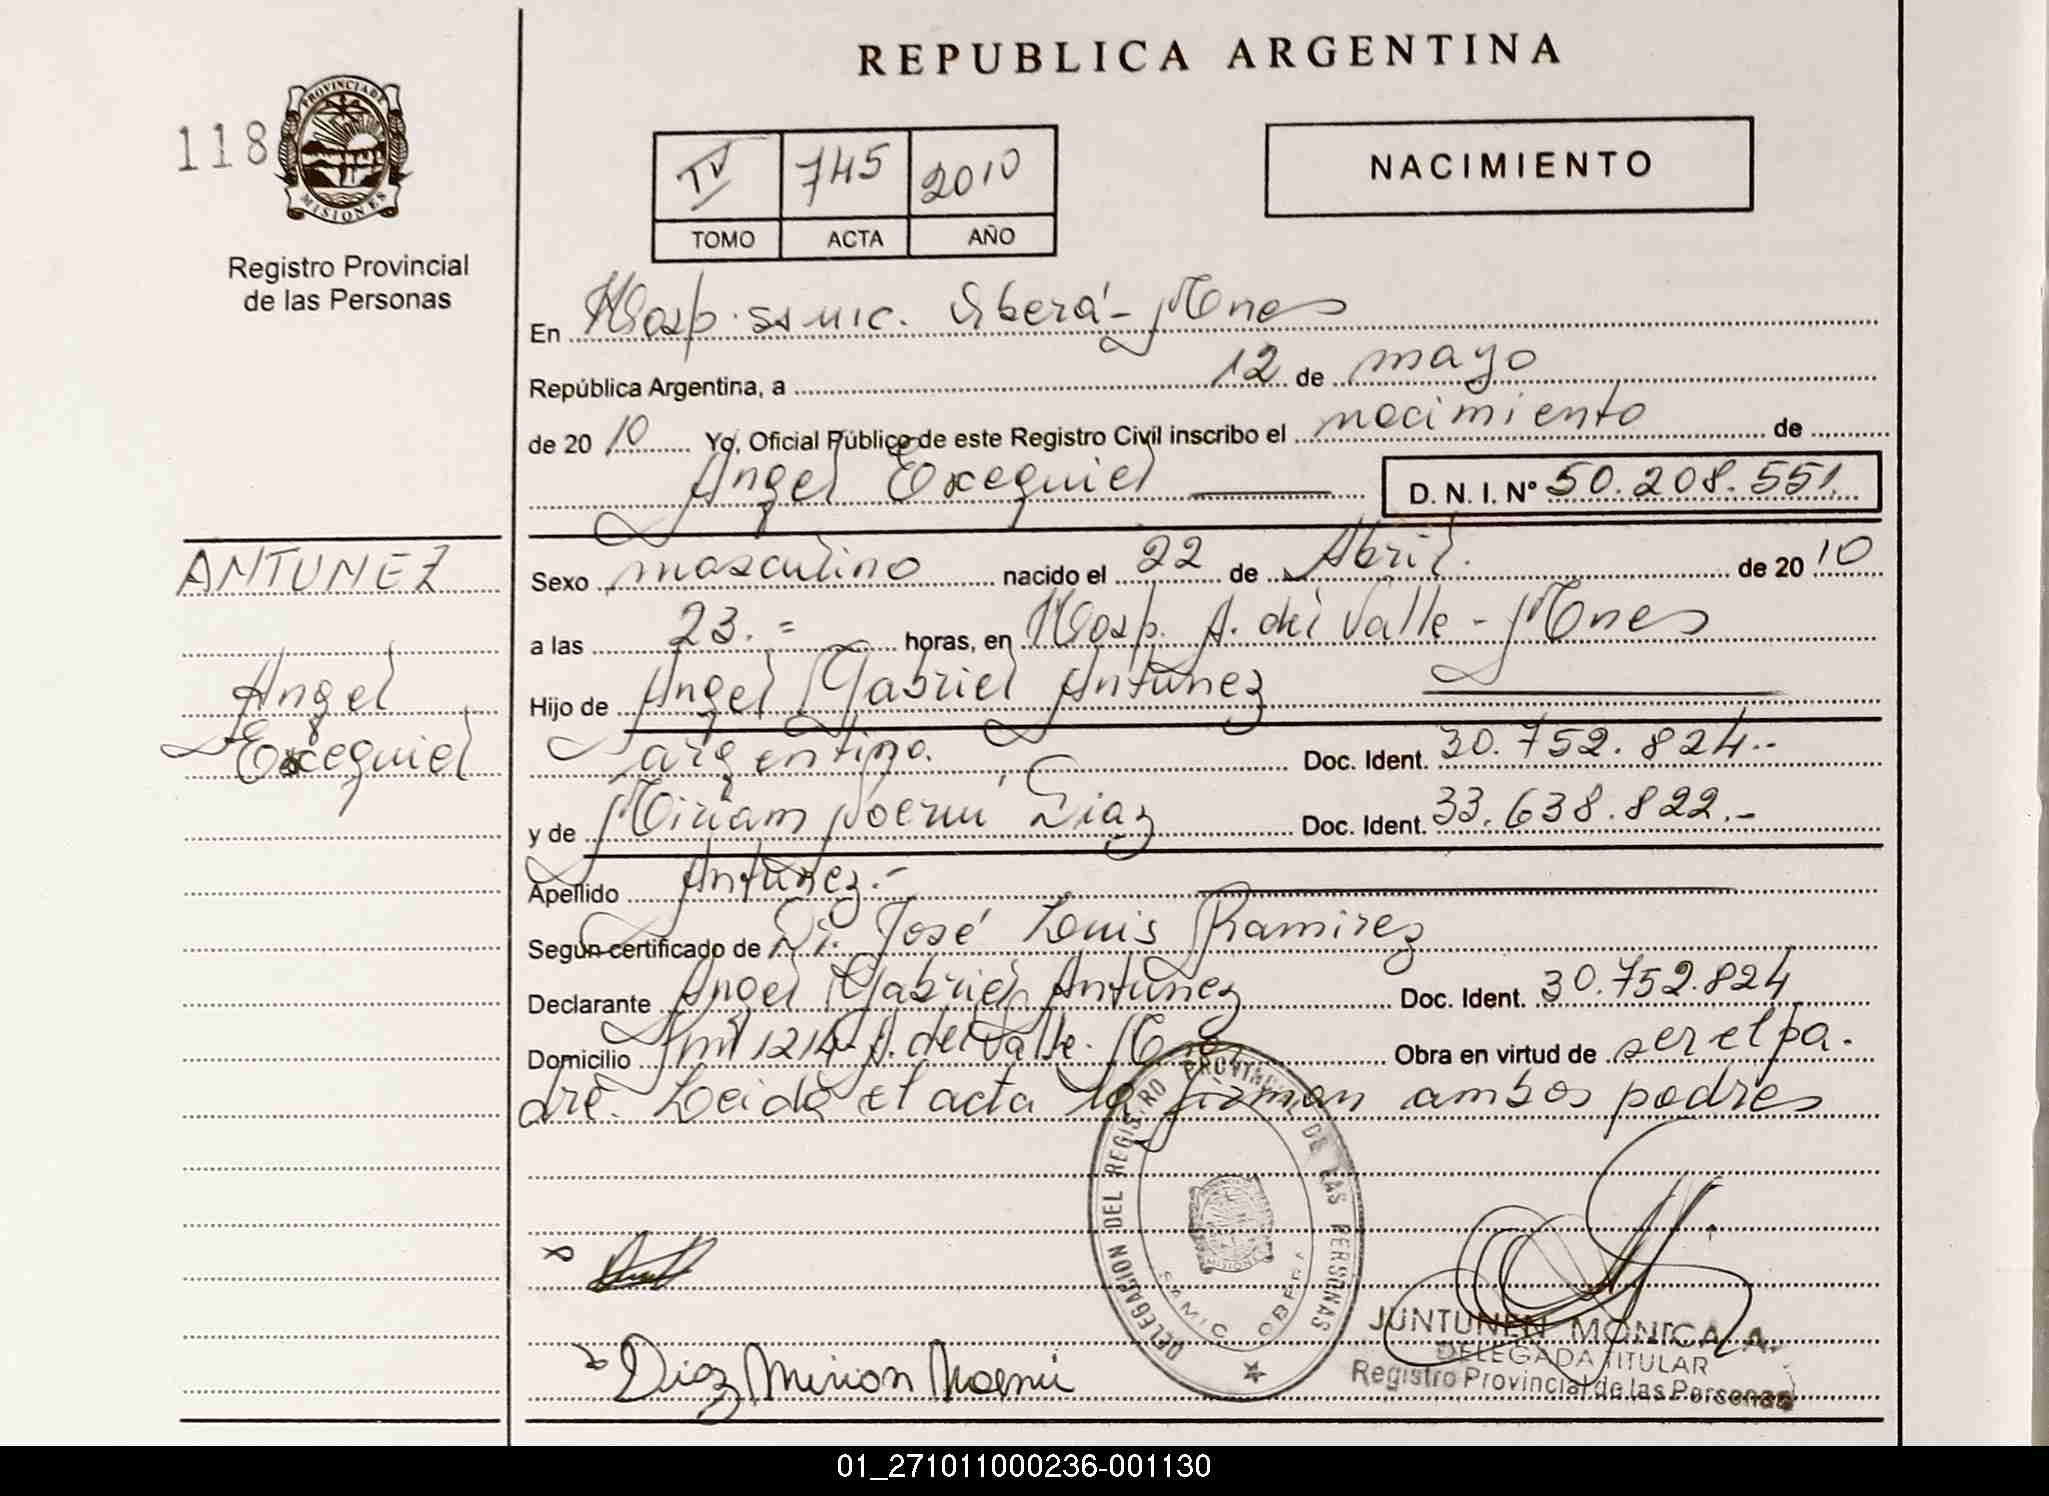 REPUBLICA ARGENTINA
118
PROVINCIA DE
MISIONES
Registro Provincial
de las Personas
IV 745 2010
TOMO ACTA AÑO
NACIMIENTO
En Hosp. SAMIC. Oberá - Mnes
República Argentina, a 12 de mayo
de 2010 Yo, Oficial Público de este Registro Civil inscribo el nacimiento de
Angel Exequiel D. N. I. Nº 50.208.551
ANTUNEZ
Angel
Exequiel
Sexo masculino nacido el 22 de Abril. de 2010
a las 23.= horas, en Hosp. A. del Valle - Mnes
Hijo de Angel Gabriel Antunez
argentino. Doc. Ident. 30.752.824.-
y de Miriam Noemí Diaz Doc. Ident. 33.638.822.-
Apellido Antunez.-
Según certificado de Dr. José Luis Ramirez
Declarante Angel Gabriel Antunez Doc. Ident. 30.752.824
Domicilio 1214 A. del Valle. Obra en virtud de ser el pa-
dre. Leida el acta la firman ambos padres
DELEGACION DEL REGISTRO PROVINCIAL DE LAS PERSONAS
MISIONES
SAMIC OBERA
Diaz Mirian Noemi
JUNTUNEN MONICA A.
DELEGADA TITULAR
Registro Provincial de las Personas
01_271011000236-001130